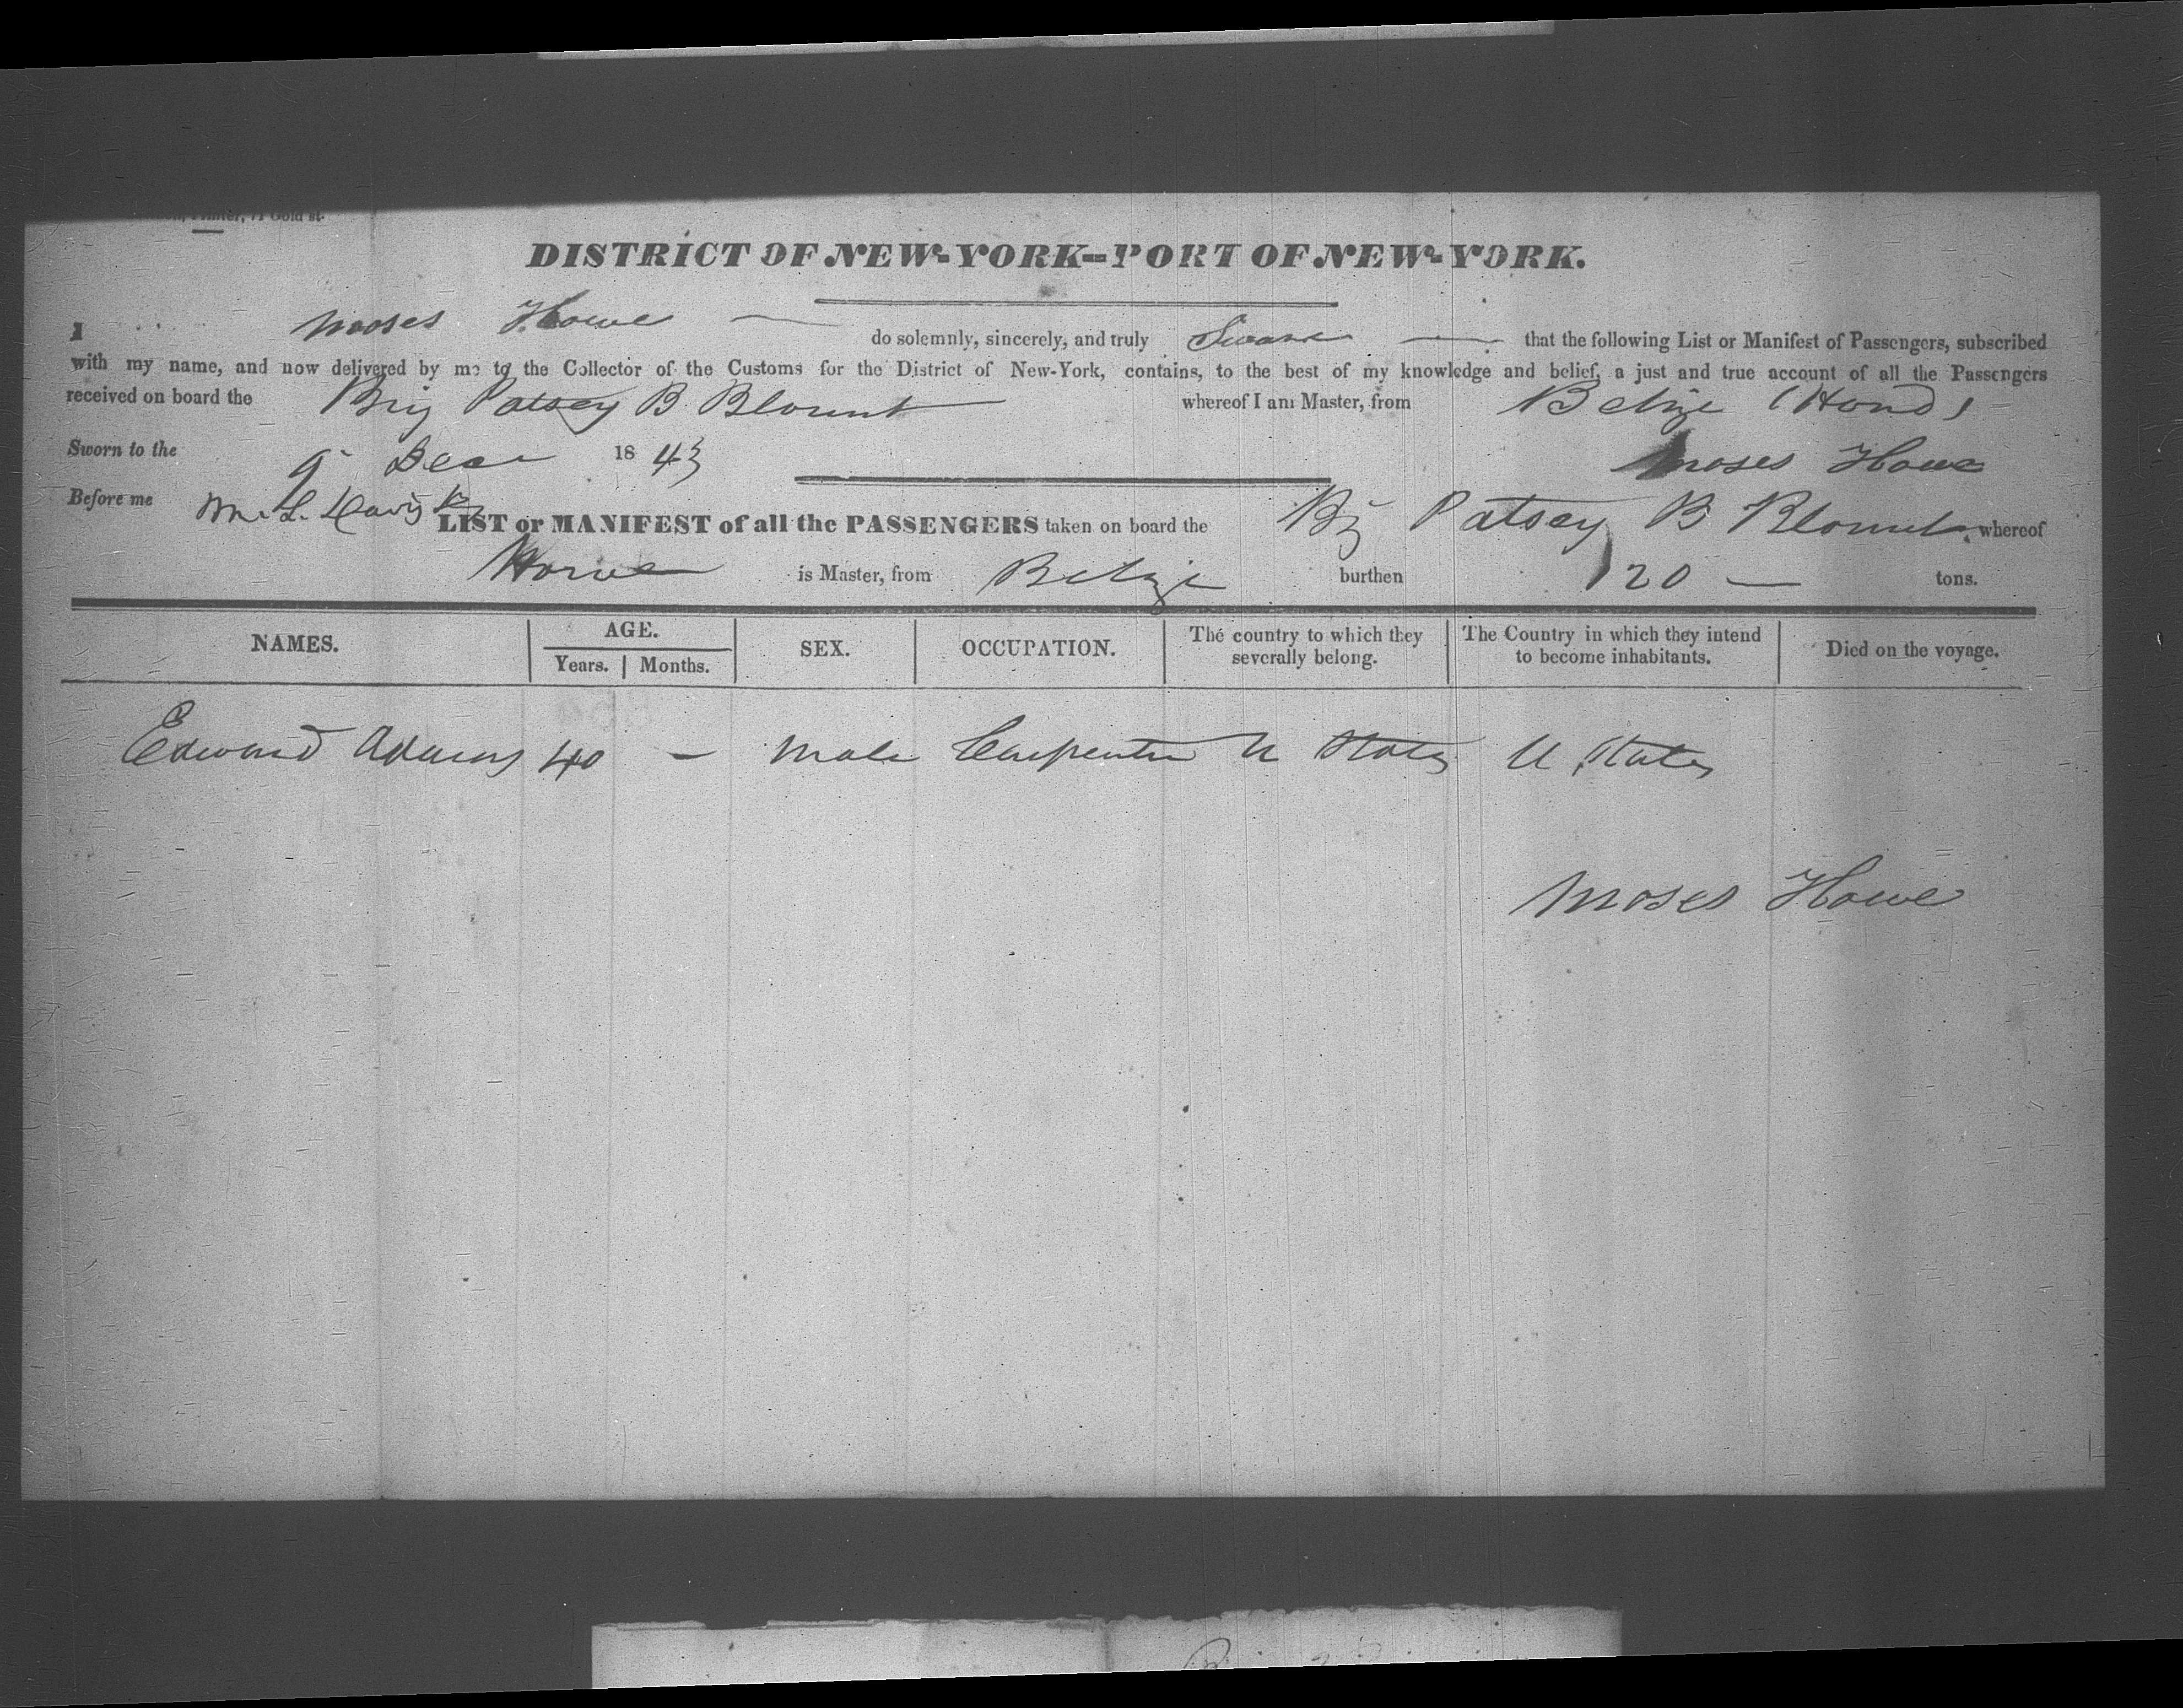 Printer, 71 Gold st.
DISTRICT OF NEW-YORK--PORT OF NEW-YORK.
I Moses Howe do solemnly, sincerely, and truly Swear that the following List or Manifest of Passengers, subscribed
with my name, and now delivered by me to the Collector of the Customs for the District of New-York, contains, to the best of my knowledge and belief, a just and true account of all the Passengers
received on board the Brig Patsey B. Blount whereof I am Master, from Belize (Hond)
Sworn to the 9 Decr 1843
Moses Howe
Before me M. L. Davis
LIST or MANIFEST of all the PASSENGERS taken on board the Big Patsey B Blount whereof
Howe is Master, from Belize burthen 120 tons.
NAMES. AGE. Years. Months. SEX. OCCUPATION. The country to which they severally belong. The Country in which they intend to become inhabitants. Died on the voyage.
Edward Adams 40 - Male Carpenter U States U States
Moses Howe